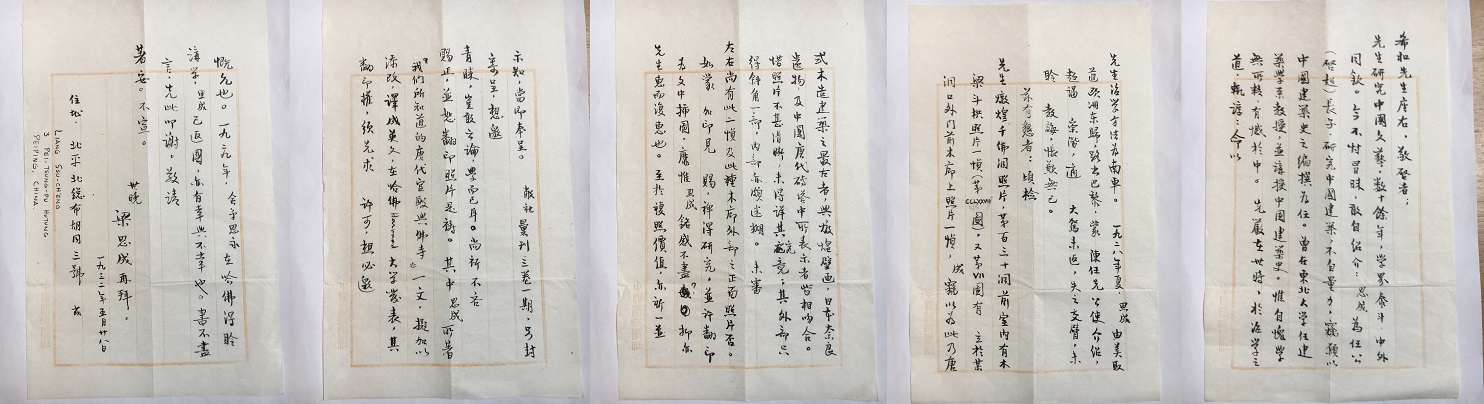 希和先生座右，敬啓者：
先生研究中國文藝，數十餘年，學界泰斗，中外
同欽。今不忖冒昧，敢自紹介：思成為任公
（啓超）長子，研究中國建築，不自量力，竊願以
中國建築史之編撰為任。曾在東北大学任建
築學系教授，並講授中國建築史。惟自愧學
無所長，有慚於中。先嚴在世時，於治學之
道，輒諄諄令以
先生治学方法為南車。一九二八年夏，思成由美取
道歐洲東歸，路出巴黎，蒙陳任先公使介紹，
趨謁崇階，適大駕未返，失之交臂，未
聆教誨，悵歉無已。
茲有懇者：頃檢
先生敦煌千佛洞照片，第百三十洞前室內有木
梁斗栱照片一幀（第CCLXXVII圖），又第VII圖有立於某
洞口外門前木廊上照片一幀，成竊以為此乃唐
式木造建築之最古者，與敦煌壁画，日本奈良
遺物，及中國唐代磚塔中所表示者皆相吻合。
惜照片不甚清晰，未得詳其究竟，其外部只
得斜角一部，內部亦頗迷糊。未審
左右尚有此一幀及此種木廊外部之正面照片否。
如蒙 加印見賜，裨得研究，並許翻印
為文中插圖，廑惟思成銘感不盡？抑亦
先生惠而復惠也。至於複照價值，亦祈一並
示知，當即奉呈。敝社彙刊三卷一期，另封
寄呈，想邀
青睞，豈敢言論，學習已耳。尚祈不吝
賜正，並恕翻印照片是禱。其中思成所著
“我們所知道的唐代宮殿與佛寺”一文，擬加以
添改，譯成英文，在哈佛Harvard大学發表，其
翻印權，須先求許可，想必邀
慨允也。一九二九年，舍弟思永在哈佛得聆
講學，思成已返國，亦有幸與不幸也。書不盡
言，先此叩谢。敬請
著安。不宣。
世晚
梁思成再拜。
一九三二年五月廿八日
住址．北平北總布胡同三號
LIANG SSU-CH'ENG
3 PEI-TSUNG-PU HUTUNG
PEIPING, CHINA